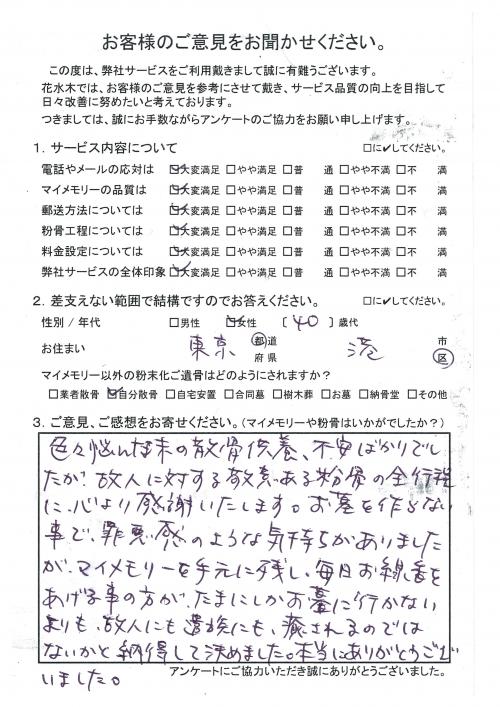 お客様のご意見をお聞かせください。
この度は、弊社サービスをご利用戴きまして誠に有難うございます。
花水木では、お客様のご意見を参考にさせて戴き、サービス品質の向上を目指して
日々改善に努めたいと考えております。
つきましては、誠にお手数ながらアンケートのご協力をお願い申し上げます。
1．サービス内容について　□に✔してください。
電話やメールの応対は　☑大変満足 □やや満足 □普　通 □やや不満 □不　満
マイメモリーの品質は　☑大変満足 □やや満足 □普　通 □やや不満 □不　満
郵送方法については　☑大変満足 □やや満足 □普　通 □やや不満 □不　満
粉骨工程については　☑大変満足 □やや満足 □普　通 □やや不満 □不　満
料金設定については　☑大変満足 □やや満足 □普　通 □やや不満 □不　満
弊社サービスの全体印象 ☑大変満足 □やや満足 □普　通 □やや不満 □不　満
2．差支えない範囲で結構ですのでお答えください。　□に✔してください。
性別 / 年代　□男性　☑女性　〔 40 〕歳代
お住まい　東京　都道府県　港　市区
マイメモリー以外の粉末化ご遺骨はどのようにされますか？
□業者散骨 ☑自分散骨 □自宅安置 □合同墓 □樹木葬 □お墓 □納骨堂 □その他
3．ご意見、ご感想をお寄せください。（マイメモリーや粉骨はいかがでしたか？）
色々悩んだ末の散骨供養、不安ばかりでし
たが、故人に対する敬意ある粉骨の全行程
に、心より感謝いたします。お墓を作らない
事で、罪悪感のような気持ちがありました
が、マイメモリーを手元に残し、毎日お線香を
あげる事の方が、たまにしかお墓に行かない
よりも、故人にも遺族にも、癒されるのでは
ないかと納得して決めました。本当にありがとうござ
いました。
アンケートにご協力いただき誠にありがとうございました。